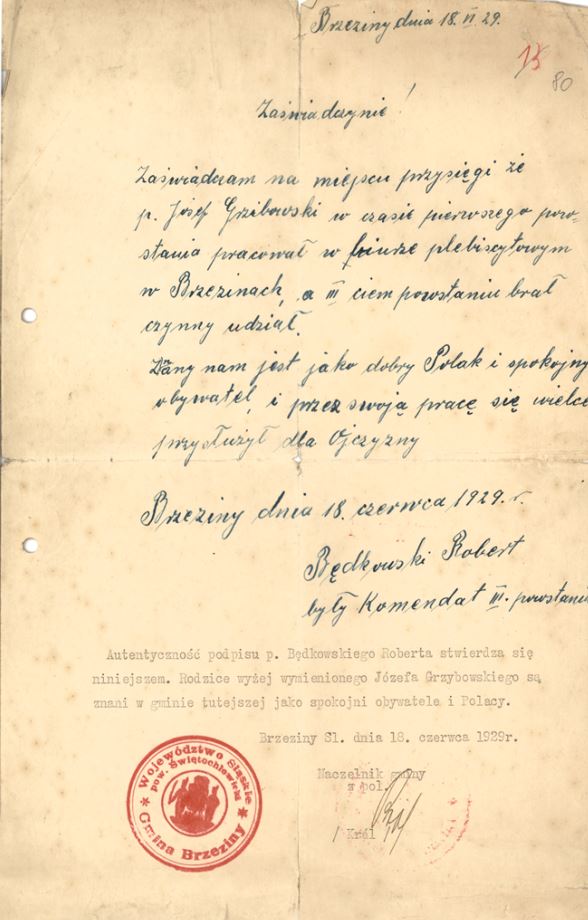 Brzeziny dnia 18. VI 29.
15
80
Zaświadczynie!
Zaświadczam na miejscu przysięgi że
p. Józef Grzibowski w czasie pierwszego pow=
stania pracował w biurze plebiscytowym
w Brzezinach, a III ciem powstaniu brał
czynny udział.
Znany nam jest jako dobry Polak i spokojny
obywatel, i przez swoją pracę się wielce
przysłużył dla Ojczyzny
Brzeziny dnia 18. czerwca 1929. r.
Będkowski Robert
były Komendat III. powstania
Autentyczność podpisu p. Będkowskiego Roberta stwierdza się
niniejszem. Rodzice wyżej wymienionego Józefa Grzybowskiego są
znani w gminie tutejszej jako spokojni obywatele i Polacy.
Brzeziny Sl. dnia 18. czerwca 1929r.
Naczelnik gminy
z pol.
/ Król
Województwo Śląskie
pow. Świętochłowicki
* Gmina Brzeziny *